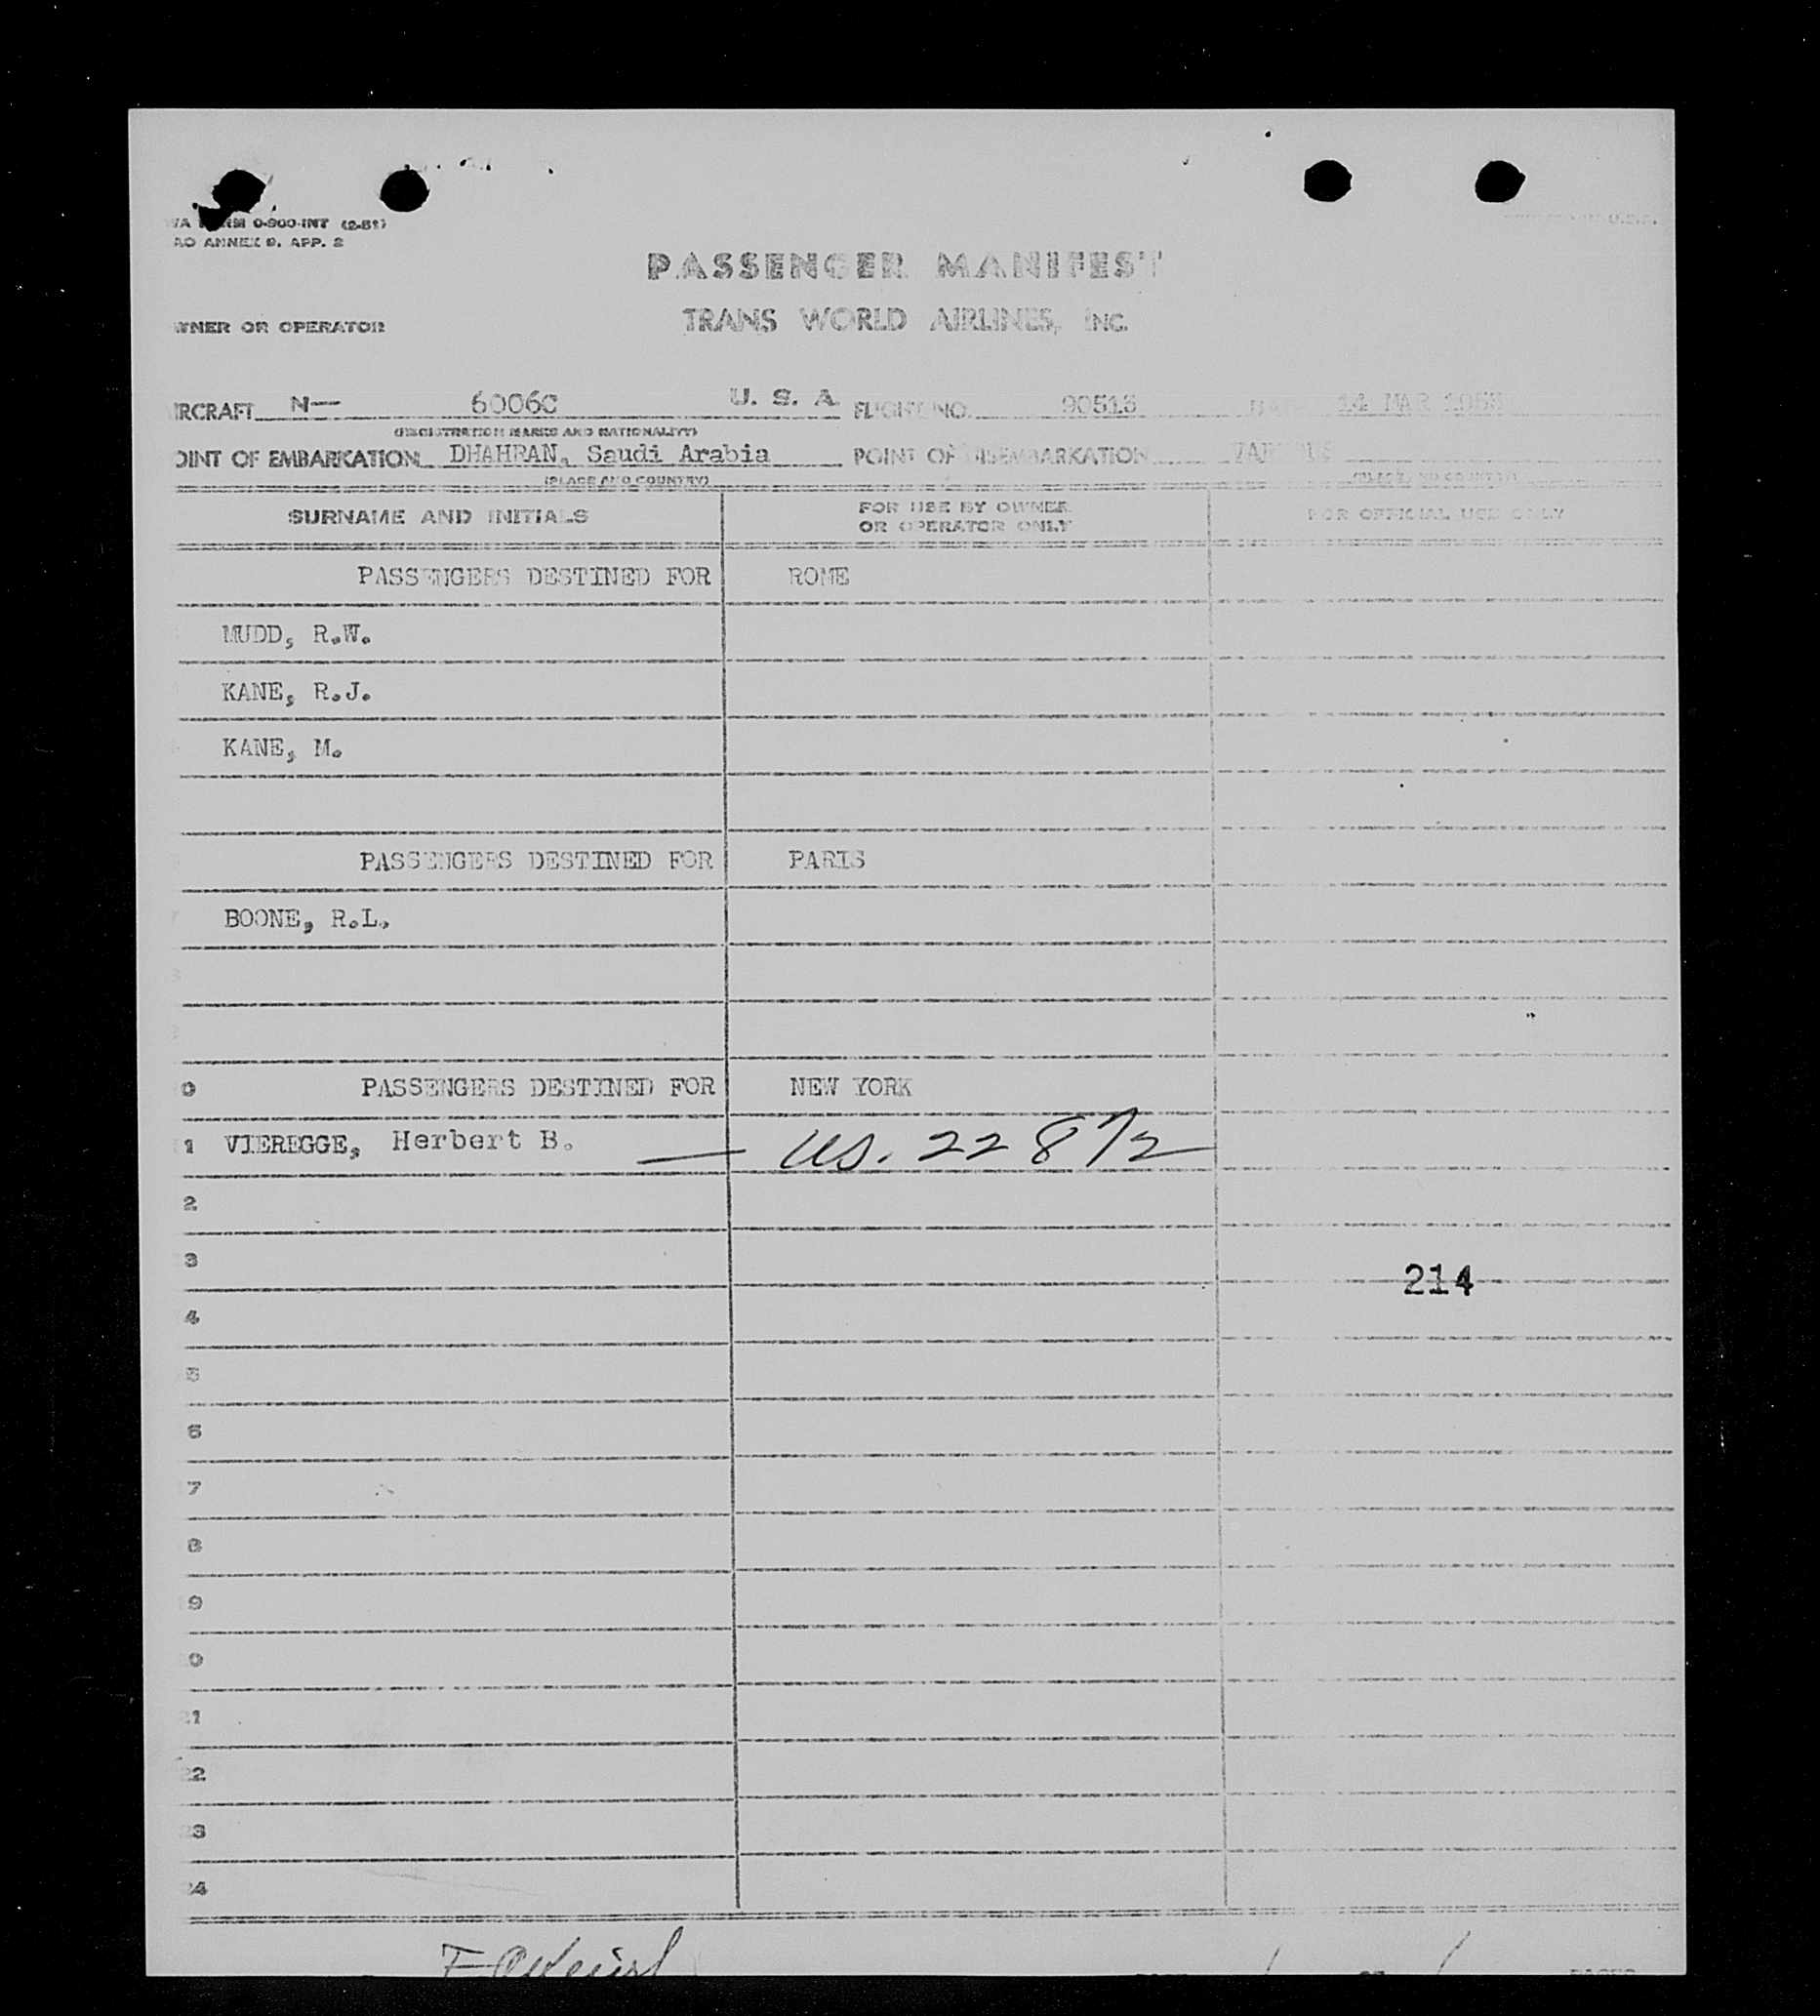 WA FORM 0-900-INT (2-51)
AO ANNEX 9, APP. 2
PASSENGER MANIFEST
WNER OR OPERATOR TRANS WORLD AIRLINES, INC.
IRCRAFT N— 6006C U. S. A FLIGHT NO. 90513 14 MAR
(REGISTRATION MARKS AND NATIONALITY)
OINT OF EMBARKATION DHAHRAN, Saudi Arabia POINT OF DISEMBARKATION
(PLACE AND COUNTRY) (PLACE AND COUNTRY)
SURNAME AND INITIALS FOR USE BY OWNER OR OPERATOR ONLY FOR OFFICIAL USE ONLY
PASSENGERS DESTINED FOR ROME
MUDD, R.W.
KANE, R.J.
KANE, M.
PASSENGERS DESTINED FOR PARIS
BOONE, R.L.
0 PASSENGERS DESTINED FOR NEW YORK
1 VIEREGGE, Herbert B. — US. 22872
2
3
214
4
5
6
7
8
9
0
1
22
3
4